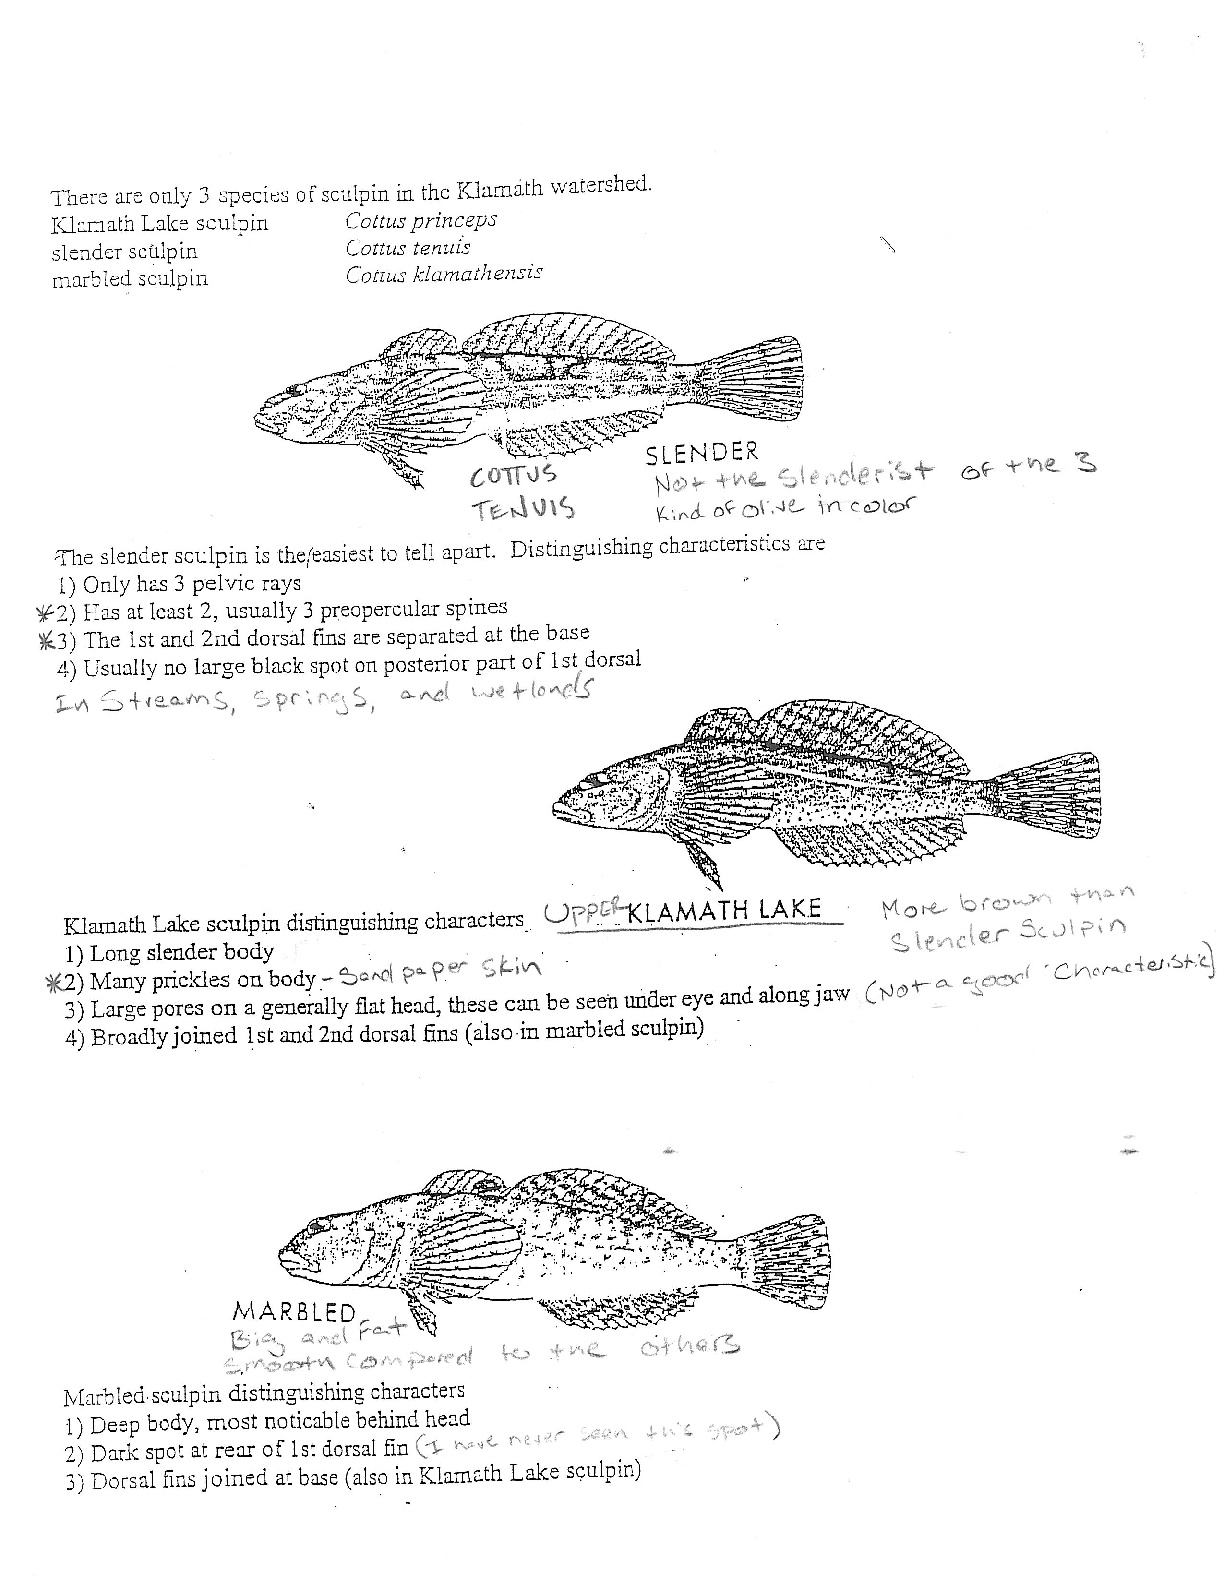 There are only 3 species of sculpin in the Klamath watershed.
Klamath Lake sculpin Cottus princeps
slender sculpin Cottus tenuis
marbled sculpin Cottus klamathensis
SLENDER
COTTUS
TENUIS
Not the Slenderist of the 3
Kind of olive in color
The slender sculpin is the/easiest to tell apart. Distinguishing characteristics are
1) Only has 3 pelvic rays
*2) Has at least 2, usually 3 preopercular spines
*3) The 1st and 2nd dorsal fins are separated at the base
4) Usually no large black spot on posterior part of 1st dorsal
In Streams, Springs, and wetlands
UPPER KLAMATH LAKE
More brown than
Slender Sculpin
Klamath Lake sculpin distinguishing characters
1) Long slender body
*2) Many prickles on body - Sand paper skin
3) Large pores on a generally flat head, these can be seen under eye and along jaw (Not a good Characteristic)
4) Broadly joined 1st and 2nd dorsal fins (also in marbled sculpin)
MARBLED
Big and Fat
Smooth compared to the others
Marbled sculpin distinguishing characters
1) Deep body, most noticable behind head
2) Dark spot at rear of 1st dorsal fin (I have never seen this spot)
3) Dorsal fins joined at base (also in Klamath Lake sculpin)